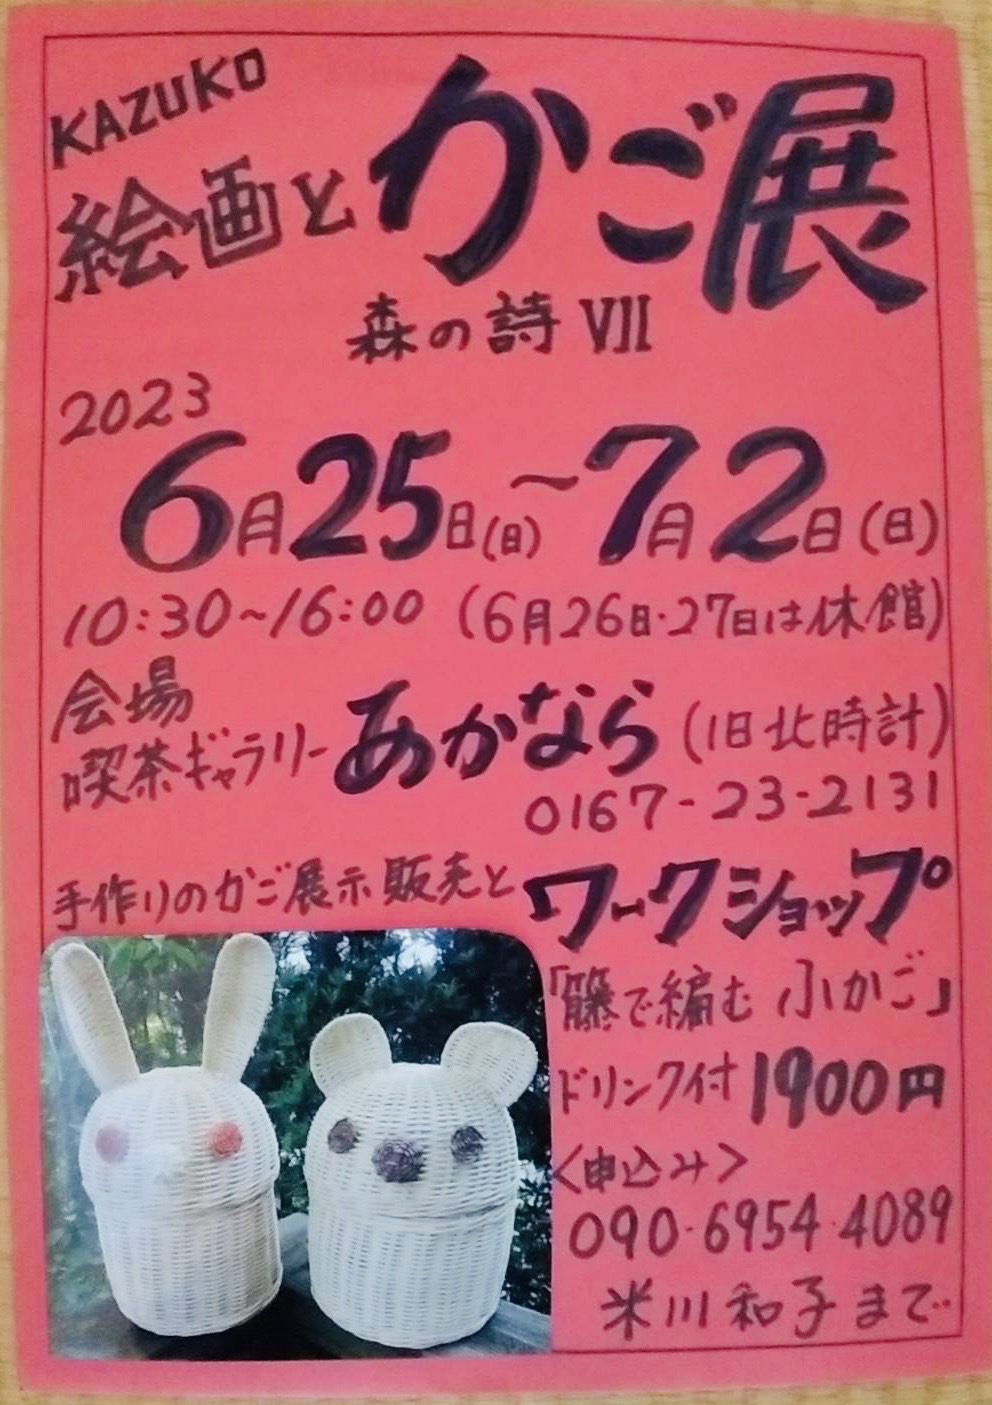 KAZUKO
絵画とかご展
森の詩 VII
2023
6月25日(日)~7月2日(日)
10:30~16:00 (6月26日・27日は休館)
会場
喫茶ギャラリーあかなら(旧北時計)
0167-23-2131
手作りのかご展示販売とワークショップ
「籐で編む小かご」
ドリンク付1900円
<申込み>
090-6954-4089
米川和子まで